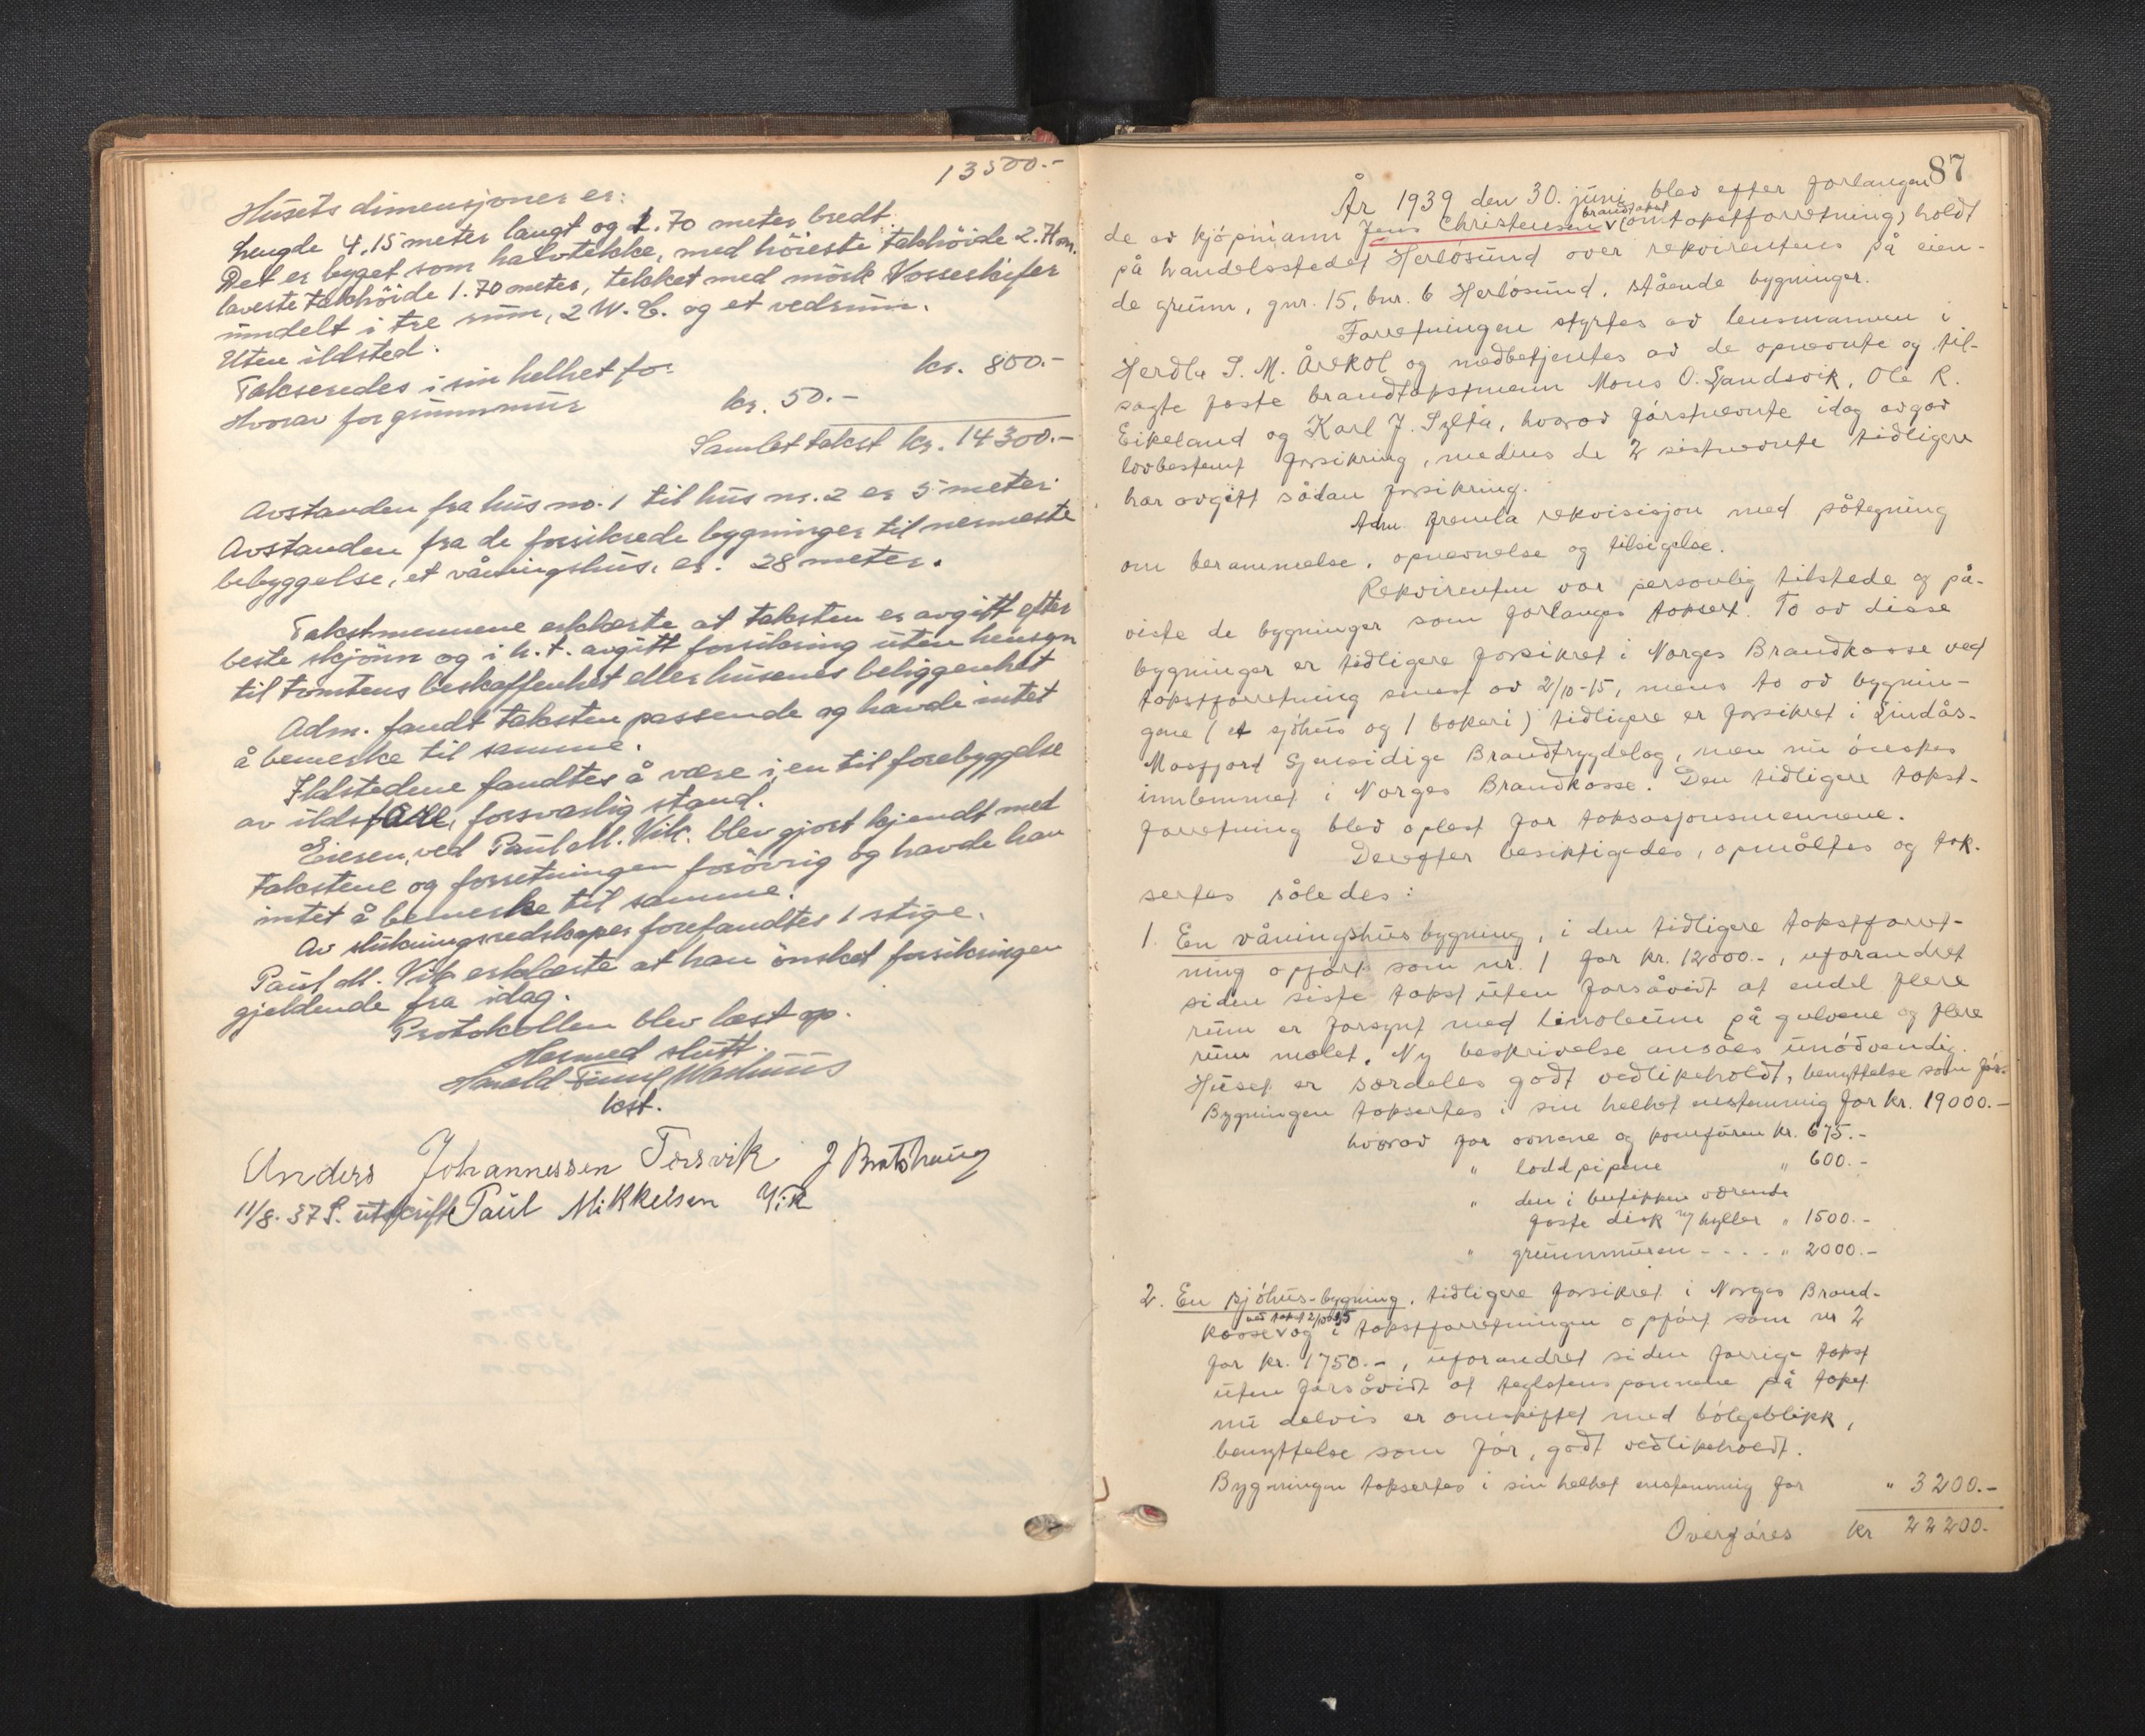 13500.-
Husets dimensjoner er:
Lengde 4.15 meter langt og 1.70 meter bredt.
Det er bygget som halvtekke, med höieste takhöide 2.70 m.
laveste takhöide 1.70 meter, tekket med mörk Vosseskifer
inndelt i tre rum, 2 W.C. og et vedrum.
Uten ildsted.
Takseredes i sin helhet for kr. 800.-
Hvorav for grunnmur kr. 50.-
Samlet takst kr. 14300.-
Avstanden fra hus no. 1 til hus nr. 2 er 5 meter.
Avstanden fra de forsikrede bygninger til nermeste
bebyggelse, et våningshus, er: 28 meter.
Takstmennene erklærte at taksten er avgitt efter
beste skjönn og i h.t. avgitt forsikring uten hensyn
til tomtens beskaffenhet eller husenes beliggenhet
Adm. fandt taksten passende og havde intet
å bemerke til samme.
Ildstedene fandtes å være i, en til forebyggelse
av ildsfare, forsvarlig stand.
Eieren, ved Paul M. Vik, blev gjort kjendt med
takstene og forretningen forövrig og havde han
intet å bemerke til samme.
Av slukningsredskaper forefandtes 1 stige.
Paul M. Vik erklærte at han önsket forsikringen
gjeldende fra idag.
Protokollen blev læst op.
Hermed slutt.
Harald
lest.
Anders Johannessen Torsvik J Brathaug
11/8. 37 S. utskrift Paul Mikkelsen Vik
87
År 1939 den 30. juni blev efter forlangen-
de av kjöpmann Jens Christensen v brandtakst (omtakstforretning) holdt
på handelsstedet Herlösund over rekvirentens på eien-
de grunn, gnr. 15, bnr. 6 Herlösund, stående bygninger.
Forretningen styrtes av lensmannen i
Herdla S. M. Årekol og medbetjentes av de opnevnte og til-
sagte faste brandtakstmenn Mons O. Sandsvik, Ole R.
Eikeland og Karl J. Sylta, hvorav förstnevnte idag avgav
lovbestemt forsikring, medens de 2 sistnevnte tidligere
har avgitt sådan forsikring.
Adm. fremla rekvisisjon med påtegning
om berammelse, opnevnelse og tilsigelse.
Rekvirenten var personlig tilstede og på-
viste de bygninger som forlanges taksert. To av disse
bygninger er tidligere forsikret i Norges Brandkasse ved
takstforretning senest av 2/10-15, mens to av bygnin-
gene (et sjöhus og 1 bakeri) tidligere er forsikret i Lindås-
Masfjord Gjensidige Brandtrygdelag, men nu önskes
innlemmet i Norges Brandkasse. Den tidligere takst-
forretning blev oplest for taksasjonsmennene.
Derefter besiktigedes, opmåltes og tak-
sertes således:
1. En våningshusbygning, i den tidligere takstforret-
ning opfört som nr. 1 for kr. 12000.-, uforandret
siden siste takst uten forsåvidt at endel flere
rum er forsynt med linoleum på gulvene og flere
rum malet. Ny beskrivelse ansåes unödvendig.
Huset er særdeles godt vedlikeholdt, benyttelse som för.
Bygningen taksertes i sin helhet enstemmig for kr. 19000.-
hvorav for ovnene og komfüren kr. 675.-
" loddpipene " 600.-
" den i butikken værende
faste disk m/ hyller " 1500.-
" grunnmuren - . . . . " 2000.-
2. En sjöhus-bygning, tidligere forsikret i Norges Brand-
kasse v ved takst 2/10 1915 og i takstforretningen opfört som nr 2
for kr. 1750.-, uforandret siden forrige takst
uten forsåvidt at teglstenspannene på taket
nu delvis er omskiftet med bölgeblikk,
benyttelse som för, godt vedlikeholdt.
Bygningen taksertes i sin helhet enstemmig for " 3200.-
Overföres kr 22200.-